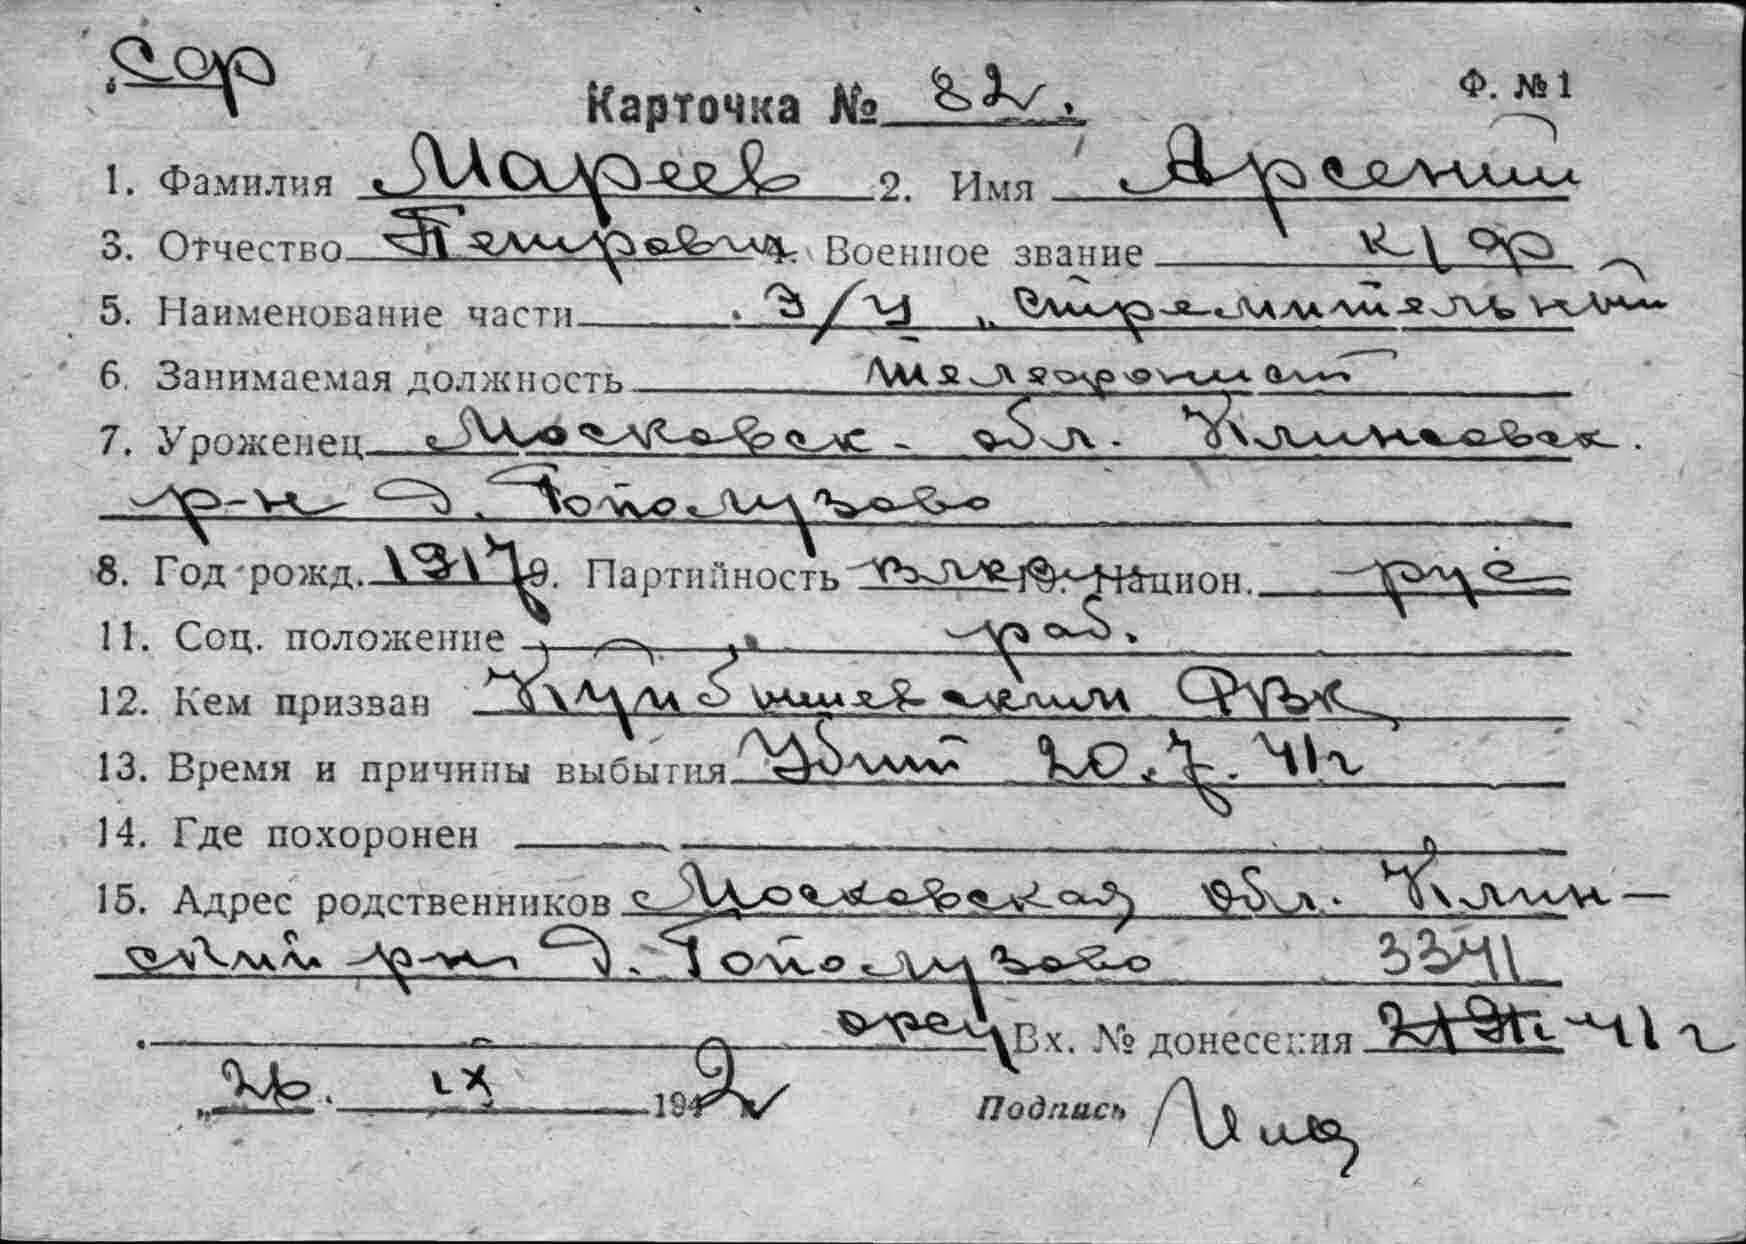 Сф
Карточка № 82. Ф. № 1
1. Фамилия Мареев 2. Имя Арсений
3. Отчество Петрович 4. Военное звание к/ф
5. Наименование части Э/М „Стремительный
6. Занимаемая должность телефонист
7. Уроженец Московск. обл. Клинсовск.
р-н д. Тополузово
8. Год рожд. 1917 9. Партийность влксм 10. Национ. рус
11. Соц. положение раб.
12. Кем призван Куйбышевским РВК
13. Время и причины выбытия Убит 20.7.41г
14. Где похоронен
15. Адрес родственников Московская обл. Клин-
ский р-н д. Тополузово 3341
Вх. № донесения 41г
„26. IX 1942 Подпись